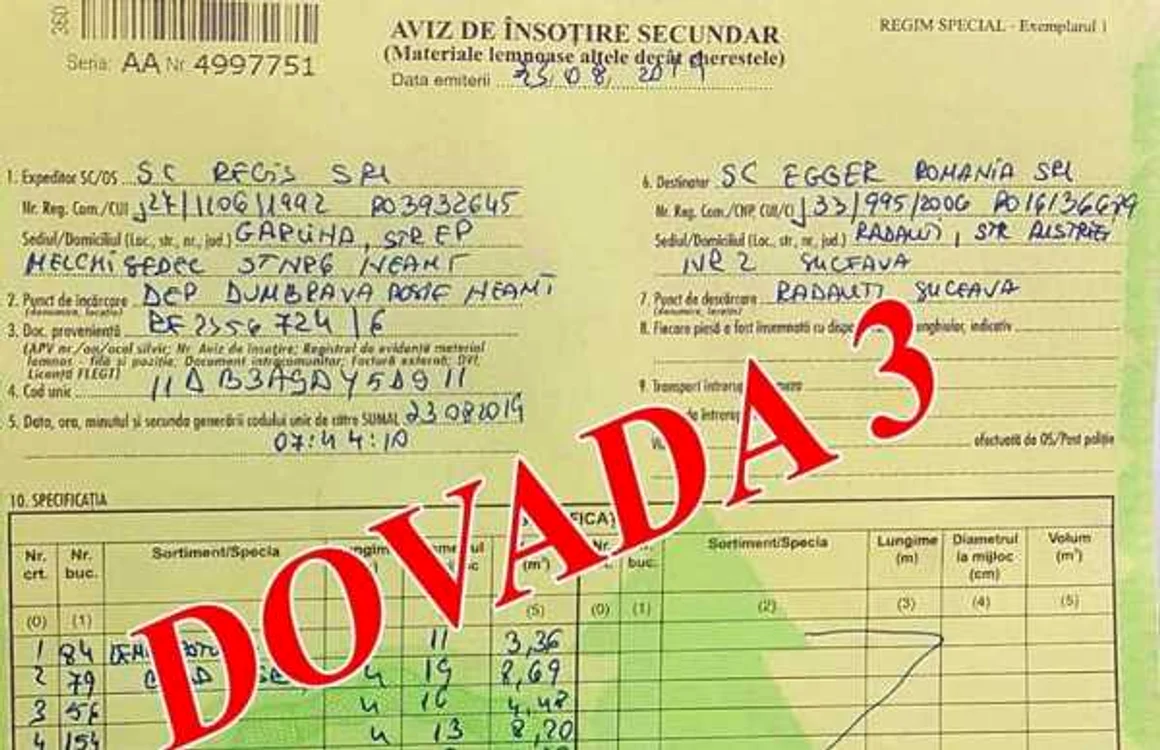 360
AVIZ DE ÎNSOȚIRE SECUNDAR
REGIM SPECIAL - Exemplarul 1
(Materiale lemnoase altele decât cherestele)
Seria: AA Nr 4997751
Data emiterii 23 08 2019
1. Expeditor SC/OS SC REGIS SRL
Nr. Reg. Com./CUI J27/1106/1992 RO3932645
Sediul/Domiciliul (Loc., str., nr., jud.) GARCINA, STR EP
MELCHISEDEC NEAMT
2. Punct de încărcare DEP DUMBRAVA ROSIE NEAMT
(denumire, locație)
3. Doc. proveniență 2356724/6
(APV nr./an/ocol silvic; Nr. Aviz de însoțire; Registrul de evidență material
lemnos - filă și poziție; Document intracomunitar; Factură externă; DVI;
Licență FLEGT)
4. Cod unic
5. Data, ora, minutul și secunda generării codului unic de către SUMAL 23 08 2019
07:44:10
6. Destinatar SC EGGER ROMANIA SRL
Nr. Reg. Com./CNP, CUI/CI J33/995/2006
Sediul/Domiciliul (Loc., str., nr., jud.) RADAUTI, STR AUSTRIEI
NR 2 SUCEAVA
7. Punct de descărcare RADAUTI SUCEAVA
(denumire, locație)
8. Fiecare piesă a fost însemnată cu indicativ
9. Transport
efectuată de OS/Post poliție
10. SPECIFICAȚIA
DOVADA 3
Nr. crt. Nr. buc. Sortiment/Specia (m³)
Sortiment/Specia Lungime (m) Diametrul la mijloc (cm) Volum (m³)
(0) (1) (5) (0) (1) (2) (3) (4) (5)
1 84 11 3,36
2 79 4 19 8,69
3 56 4 16 4,48
4 154 4 13 8,20